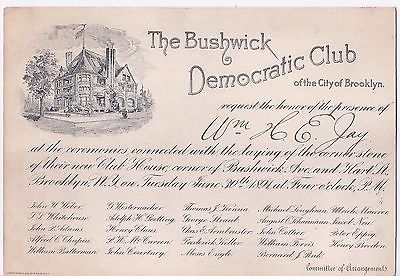 The Bushwick
Democratic Club
of the City of Brooklyn.
request the honor of the presence of
Wm H. E. Jay
at the ceremonies connected with the laying of the corner stone
of their new Club House, corner of Bushwick Ave. and Hart St.
Brooklyn, N.Y. on Tuesday June 30th 1891, at Four o'clock, P.M.
John W. Weber, G. Westermacher, Thomas J. Kenna, Michael Loughran, Ulrich Maurer
Adolph H. Goetting, George Straub, August
John P. Adams, Henry Claus, Chas E. Armbruster, John Cottier, Peter Eppig
Alfred C. Chapin, P. H. McCarren, Frederick Keller, William Ferris, Henry Breeden
William Batterman, John Courtney, Moses Engle, Bernard J. Pink
Committee of Arrangements.